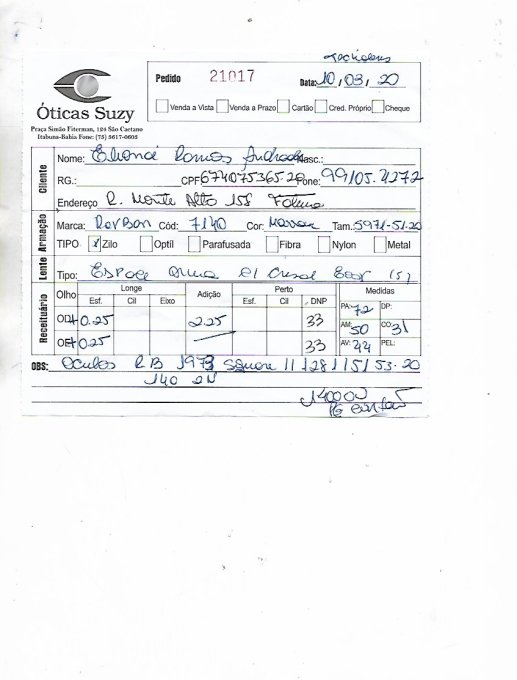 Óticas Suzy
Praça Simão Fiterman, 124 São Caetano
Itabuna-Bahia Fone: (75) 3617-0605
Pedido 21017 Data: 10, 03, 20
Venda a Vista Venda a Prazo Cartão Cred. Próprio Cheque
Cliente
Nome: Ramos Andrade Nasc.:
RG.: CPF 674075365-20 Fone: 99105.4272
Endereço R. Monte Alto 158 Fátima
Armação
Marca: RayBan Cód: 7140 Cor: Marrom Tam. 5971-51.20
TIPO X Zilo Optil Parafusada Fibra Nylon Metal
Lente
Tipo: Espace
Receituário
Olho Longe Adição Perto Medidas
Esf. Cil Eixo Esf. Cil DNP
OD +0.25 2.25 33 PA: 72 DP:
AM: 50 CO: 31
OE +0.25 33 AV: 44 PEL:
OBS: Oculos RB 1973 Square 11 128 115 53-20
140 2N
140,00
PG cartão